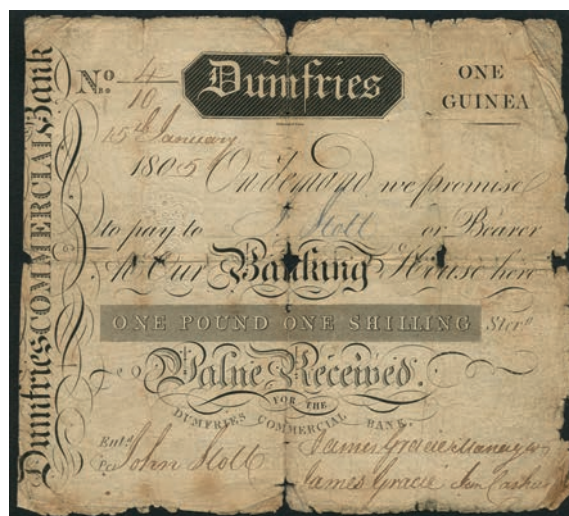 Dumfries COMMERCIAL Bank
No. 4/10
Dumfries
ONE
GUINEA
15th January
1805 On demand we promise
to pay to J. Stott or Bearer
At Our Banking House here
ONE POUND ONE SHILLING Ster.
Value Received.
FOR THE
DUMFRIES COMMERCIAL BANK.
Entd. James Gracie Manager
Pr. John Stott
James Gracie Jun Cashr